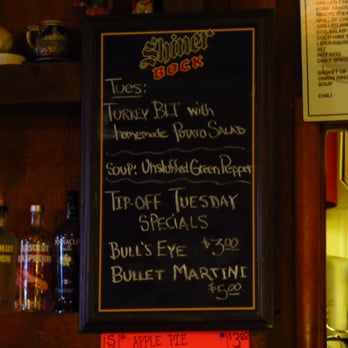 Shiner
BOCK
Tues:
TURKEY BLT with
homemade POTATO SALAD
SOUP: Unstuffed Green Pepper
TIP-OFF TUESDAY
SPECIALS
BULL'S EYE $3.00
BULLET MARTINI
$5.00
APPLE PIE $3.00
ABSOLUT
RASPBERRI
ONION RINGS
SOUP
CHILI